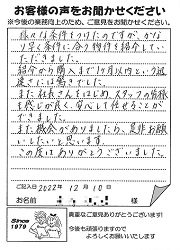 お客様の声をお聞かせください
※今後の業務向上のため、ご意見をお聞かせください。
様々な条件をつけたのですが、かな
り早く条件に合う物件を紹介してい
ただきました。
紹介から購入まで1ヶ月以内という超
速さには驚きでした。
また社長さんをはじめ、スタッフの皆様
も感じが良く、安心して任せることが
できました。
また機会がありましたら、是非お願
いしたいと思います。
この度はありがとうございました。
ご記入日 2022年 12月 10日
お名前 様
貴重なご意見ありがとうございます!
今後も頑張りますので
よろしくお願いいたします
Since
1979